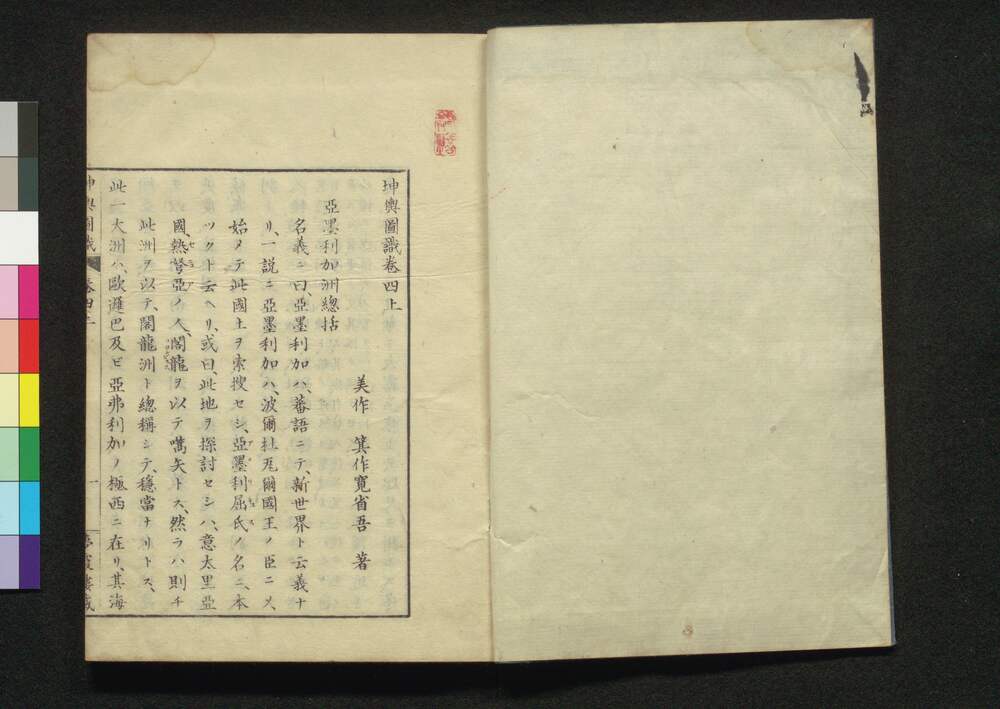 坤輿圖識卷四上
美作 箕作寛省吾 著
亞墨利加洲總括
名義ニ曰、亞墨利加ハ、蕃語ニテ、新世界ト云義ナ
リ、一説ニ亞墨利加ハ、波爾杜瓦爾國王ノ臣ニメ、
始メテ此國土ヲ索搜セシ、亞墨利屈氏ノ名ニ、本
ツクト云ヘリ、或曰、此地ヲ探討セシハ、意太里亞
國、熱督亞ノ人、閣龍ヲ以テ嚆矢トス、然ラハ則チ
此洲ヲ以テ、閣龍洲ト總稱シテ、穩當ナリトス、
此一大洲ハ、歐邏巴及ビ亞弗利加ノ極西ニ在リ、其海
坤輿圖識 卷四上 一